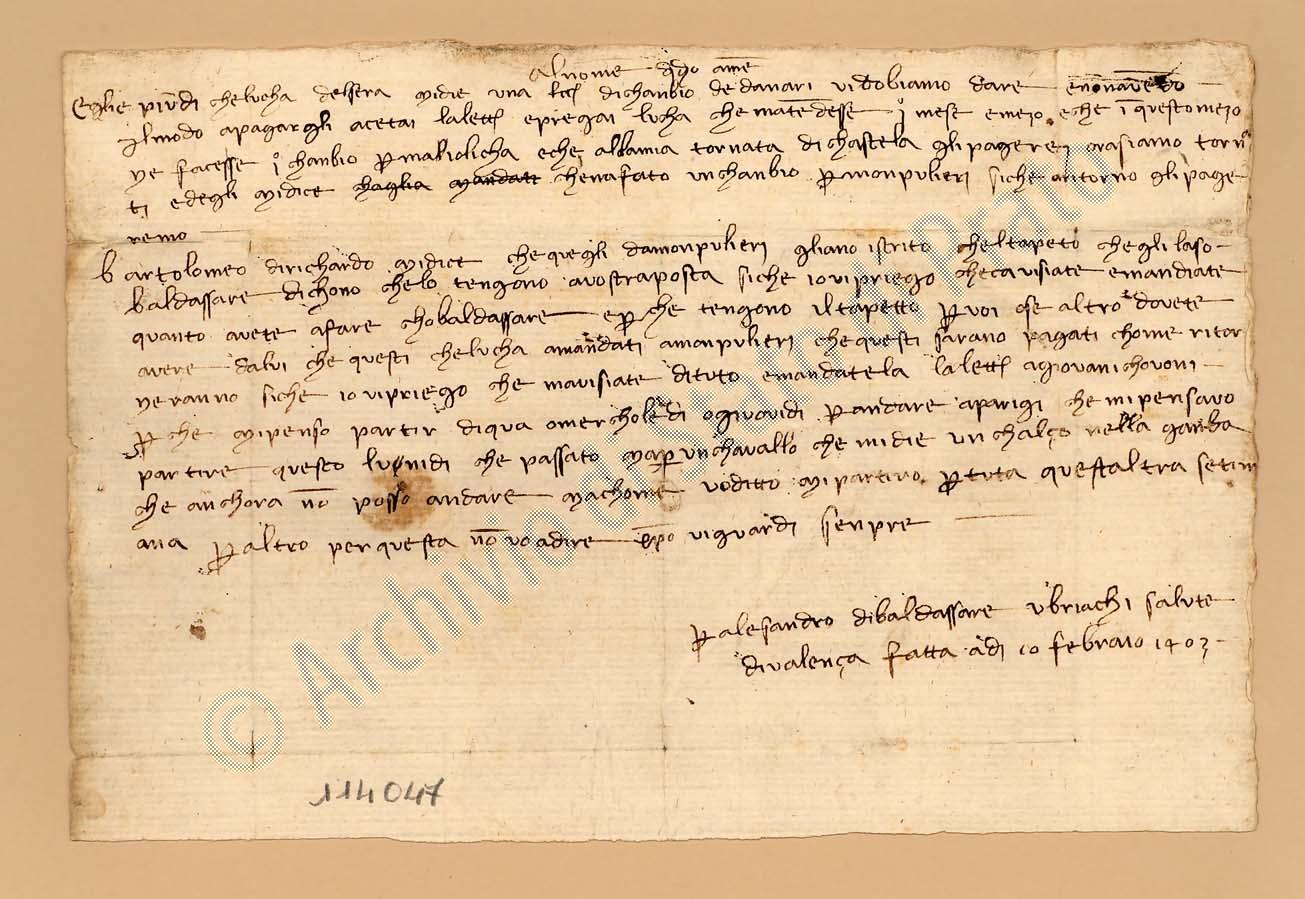 Al nome di Dio ame
Eglie piu dì che Lucha del Sera mi die una letta di chanbio de danari vi dobiamo dare e non avendo
il modo a pagargli acetai la letta e pregai Lucha che m atendesse 1° mese e mezo e che in questo mezo
ne facesse 1° chanbio per Maliolicha e che alla mia tornata di Chastela gli pagerei ora siamo torna
ti ed egli mi dice che n a fato un chanbio per Monpulieri si che a ritorno gli page
remo
Bartolomeo di Richardo mi dice che quegli da Monpulieri gli ano iscrito che l tapeto che gli laso
Baldassare dichono che lo tengono a vostra posta si che io vi priego che c avisiate e mandiate
quanto avete a fare cho Baldassare e perche tengono il tapetto per voi o se altro dovete
avere da lui che questi che Lucha a mandati a Monpulieri che questi sarano pagati chome ritor
neranno si che io vi priego che m avisiate di tuto e mandatela la letta a Giovanichovoni
perche mi penso partir di qua o merchole dì o giovaidi per andare a Parigi che mi pensavo
partire questo lunidi che passato ma per un chavallo che mi die un chalço nella ganba
che anchora non posso andare ma chome v o ditto mi partiro per tuta quest altra setim
ana per altro per questa non vo a dire Cristo vi guardi senpre
per Alesandro di Baldassare Ubriachi salute
di Valença fatta a dì 10 febraio 1403
114047
© Archivio di Stato di Prato